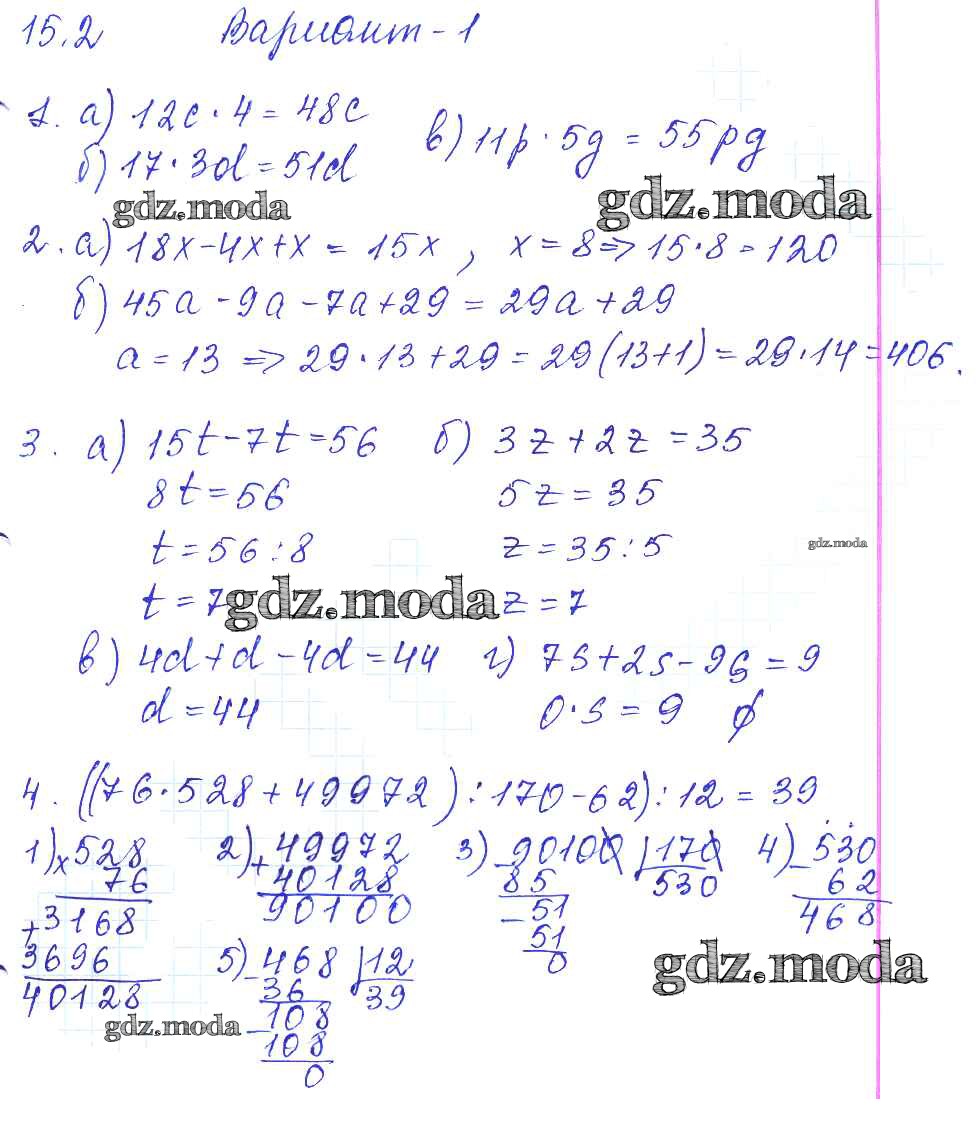 15.2 Вариант-1
1. а) 12c·4 = 48c
в) 11p·5g = 55pg
б) 17·3d = 51d
gdz.moda
gdz.moda
2. а) 18x-4x+x = 15x, x = 8 => 15·8 = 120
б) 45a - 9a - 7a + 29 = 29a + 29
a = 13 => 29·13+29 = 29(13+1) = 29·14 = 406.
3. а) 15t-7t=56 б) 3z+2z=35
8t=56 5z=35
t=56:8 z=35:5
gdz.moda
t=7 z=7
gdz.moda
в) 4d+d-4d=44 г) 7s+2s-9s=9
d=44 0·s=9 ∅
4. ((76·528+49972):170-62):12 = 39
1) ×528 2) +49972 3) -90100 |170 4) -530
76 40128 85 530 62
+3168 90100 -51 468
3696 51
40128 0
5) -468 |12
36 39
-108
108
0
gdz.moda
gdz.moda